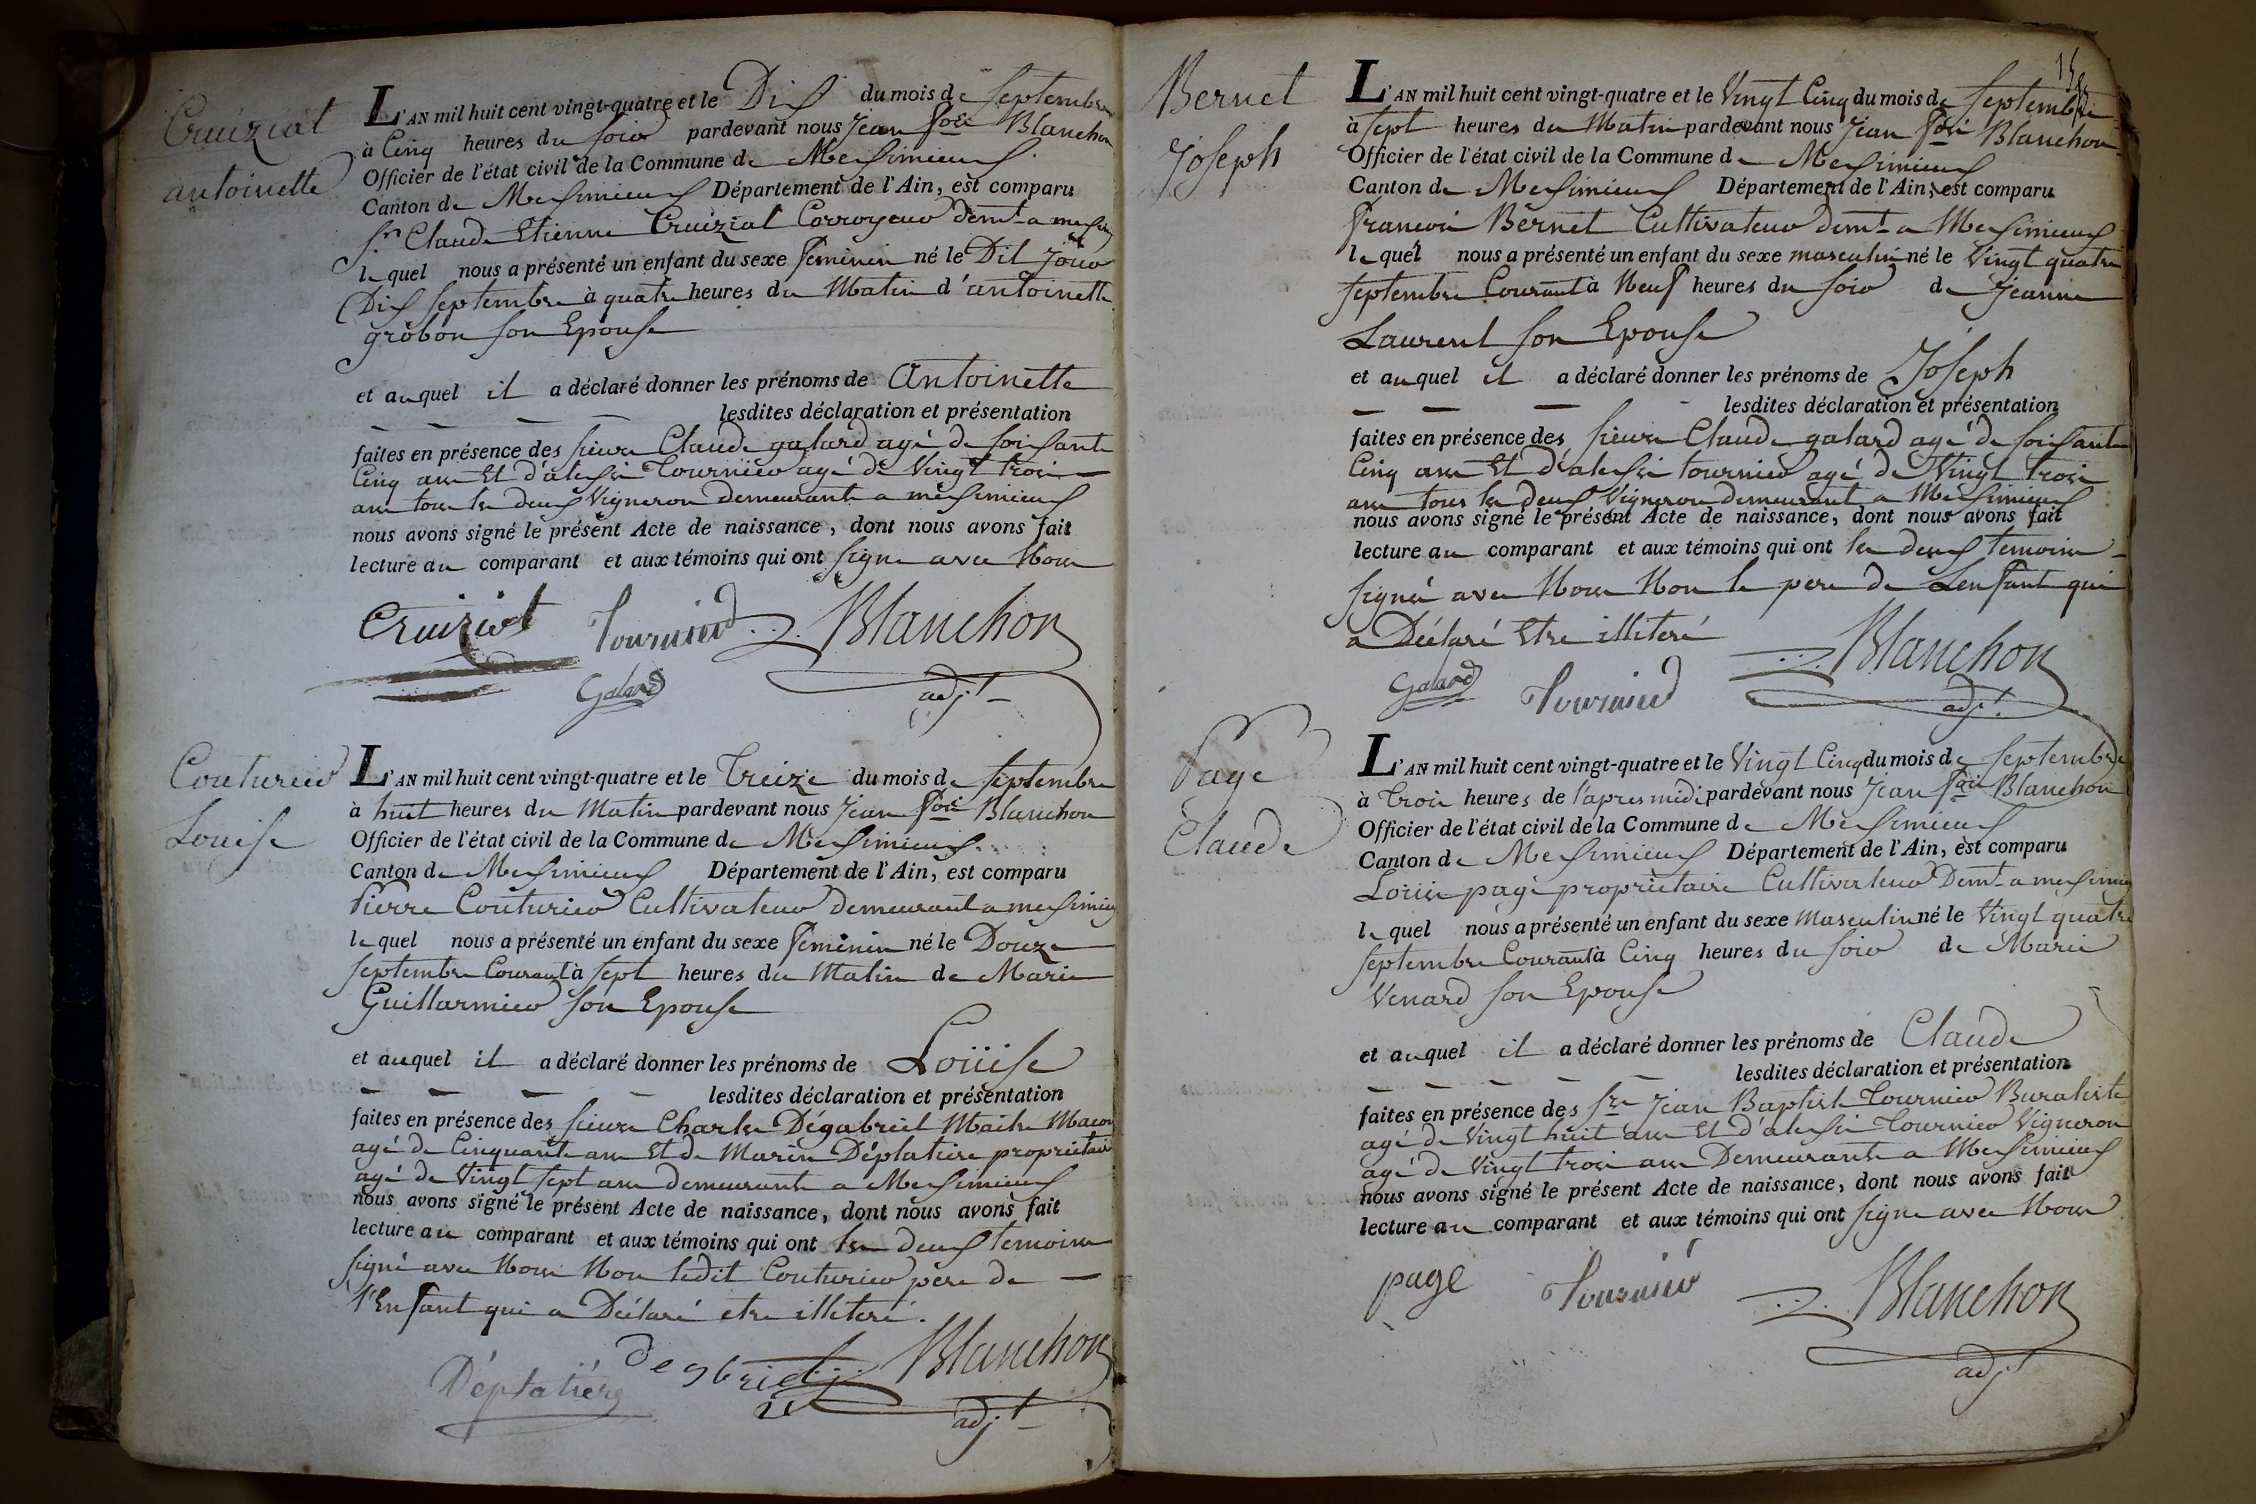 Cruiziat
antoinette
L'AN mil huit cent vingt-quatre et le Dix du mois de Septembre
à Cinq heures du soir pardevant nous Jean fois Blanchon
Officier de l'état civil de la Commune de Meximieux
Canton de Meximieux Département de l'Ain, est comparu
sr Claude Etienne Cruiziat Corroyeur demt a mexx
lequel nous a présenté un enfant du sexe feminin né le Dit Jour
Dix septembre à quatre heures du Matin d'antoinette
grobon son Epouse
et auquel il a déclaré donner les prénoms de Antoinette
lesdites déclaration et présentation
faites en présence des sieurs Claude galard agé de soixante
Cinq ans Et d'alexis Tournier agé de Vingt trois
ans tous les deux Vignerons demeurants a meximieux
nous avons signé le présent Acte de naissance, dont nous avons fait
lecture au comparant et aux témoins qui ont signé avec Nous
Cruiziat Tournier Blanchon
Galard adjt
Couturier
Louise
L'AN mil huit cent vingt-quatre et le Treize du mois de septembre
à huit heures du Matin pardevant nous Jean fois Blanchon
Officier de l'état civil de la Commune de Meximieux
Canton de Meximieux Département de l'Ain, est comparu
Pierre Couturier Cultivateur demeurant a meximieux
lequel nous a présenté un enfant du sexe feminin né le Douze
septembre Courant à sept heures du Matin de Marie
Guillarmier son Epouse
et auquel il a déclaré donner les prénoms de Loüise
lesdites déclaration et présentation
faites en présence des sieurs Charles Dégabriel Maitre Macon
agé de Cinquante ans Et de Marin Déplatière propriétaire
agé de Vingt sept ans demeurants a Meximieux
nous avons signé le présent Acte de naissance, dont nous avons fait
lecture au comparant et aux témoins qui ont les deux temoins
signé avec Nous Non ledit Couturier père de
l'Enfant qui a Déclaré etre illiteré.
Déplatière degabriel Blanchon
adjt
Bernet
Joseph
L'AN mil huit cent vingt-quatre et le Vingt Cinq du mois de Septembre
à sept heures du Matin pardevant nous Jean fois Blanchon
Officier de l'état civil de la Commune de Meximieux
Canton de Meximieux Département de l'Ain, est comparu
francois Bernet Cultivateur demt a Meximieux
lequel nous a présenté un enfant du sexe masculin né le Vingt quatre
septembre Courant à Neuf heures du soir de Jeanne
Laurent son Epouse
et auquel il a déclaré donner les prénoms de Joseph
lesdites déclaration et présentation
faites en présence des sieurs Claude galard agé de soixante
Cinq ans Et d'alexis tournier agé de Vingt trois
ans tous les deux Vignerons demeurant a Meximieux
nous avons signé le présent Acte de naissance, dont nous avons fait
lecture au comparant et aux témoins qui ont les deux temoins
signés avec Nous Non le pere de Lenfant qui
a Déclaré Etre illiteré
Galard Tournier Blanchon
adjt
Page
Claude
L'AN mil huit cent vingt-quatre et le Vingt Cinq du mois de Septembre
à Trois heures de l'apres midi pardevant nous Jean fois Blanchon
Officier de l'état civil de la Commune de Meximieux
Canton de Meximieux Département de l'Ain, est comparu
Louis page propriétaire Cultivateur Demt a meximieux
lequel nous a présenté un enfant du sexe Masculin né le Vingt quatre
septembre Courant à Cinq heures du soir de Marie
Venard son Epouse
et auquel il a déclaré donner les prénoms de Claude
lesdites déclaration et présentation
faites en présence des srs Jean Baptiste Tournier Buraliste
agé de Vingt huit ans Et d'alexis Tournier Vigneron
agé de Vingt trois ans Demeurants a Meximieux
nous avons signé le présent Acte de naissance, dont nous avons fait
lecture au comparant et aux témoins qui ont signé avec Nous
page Tournier Blanchon
adjt